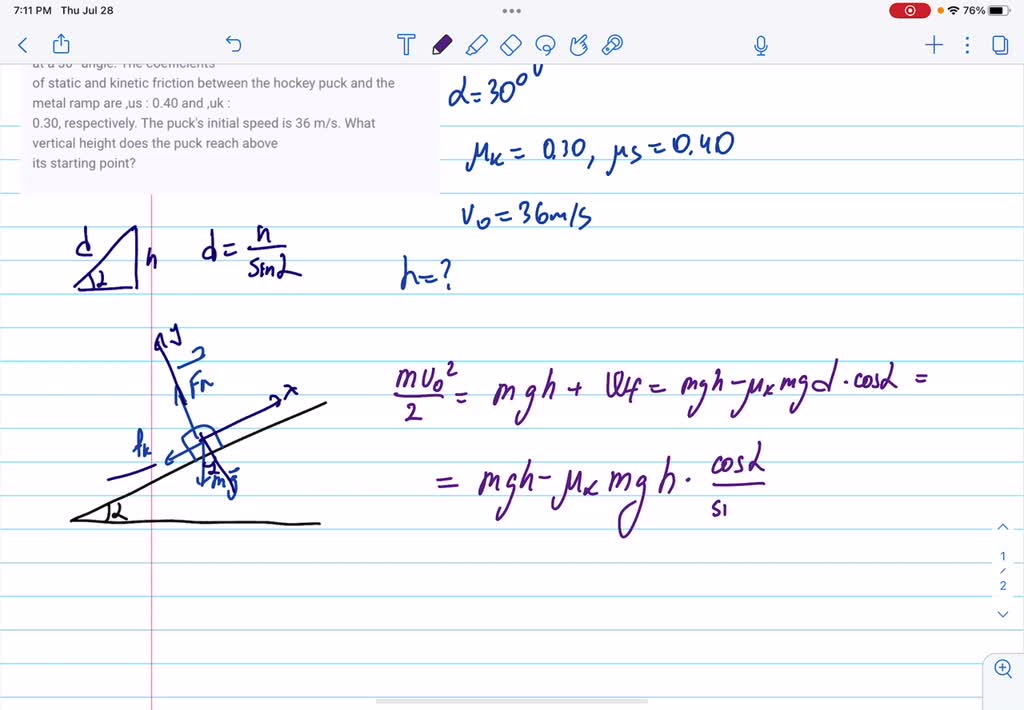 7:11 PM Thu Jul 28
76%
at a 30° angle. The coefficients
of static and kinetic friction between the hockey puck and the
metal ramp are ,us : 0.40 and ,uk :
0.30, respectively. The puck's initial speed is 36 m/s. What
vertical height does the puck reach above
its starting point?
α=30°
μk = 0.30, μs = 0.40
v0 = 36m/s
h=?
d
h
α
d = h / sinα
y
Fn
x
fk
mg
α
mv0²/2 = mgh + Wf = mgh - μk mgd · cosα =
= mgh - μk mgh · cosα / si
1
/
2